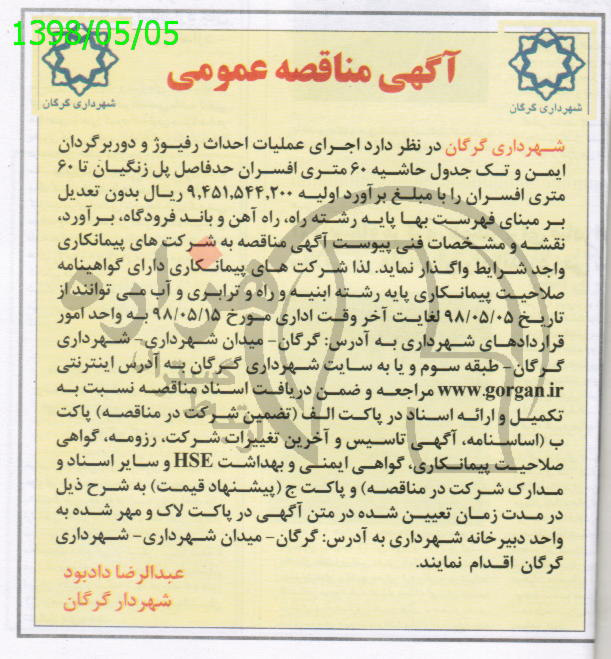 1398/05/05
آگهی مناقصه عمومی
شهرداری گرگان
شهرداری گرگان
شهرداری گرگان در نظر دارد اجرای عملیات احداث رفیوژ و دوربرگردان
ایمن و تک جدول حاشیه ۶۰ متری افسران حدفاصل پل زنگیان تا ۶۰
متری افسران را با مبلغ برآورد اولیه ۹,۴۵۱,۵۴۴,۲۰۰ ریال بدون تعدیل
بر مبنای فهرست بها پایه رشته راه، راه آهن و باند فرودگاه، برآورد،
نقشه و مشخصات فنی پیوست آگهی مناقصه به شرکت های پیمانکاری
واجد شرایط واگذار نماید. لذا شرکت های پیمانکاری دارای گواهینامه
صلاحیت پیمانکاری پایه رشته ابنیه و راه و ترابری و آب می توانند از
تاریخ ۹۸/۰۵/۰۵ لغایت آخر وقت اداری مورخ ۹۸/۰۵/۱۵ به واحد امور
قراردادهای شهرداری به آدرس: گرگان- میدان شهرداری- شهرداری
گرگان- طبقه سوم و یا به سایت شهرداری گرگان به آدرس اینترنتی
www.gorgan.ir مراجعه و ضمن دریافت اسناد مناقصه نسبت به
تکمیل و ارائه اسناد در پاکت الف (تضمین شرکت در مناقصه) پاکت
ب (اساسنامه، آگهی تاسیس و آخرین تغییرات شرکت، رزومه، گواهی
صلاحیت پیمانکاری، گواهی ایمنی و بهداشت HSE و سایر اسناد و
مدارک شرکت در مناقصه) و پاکت ج (پیشنهاد قیمت) به شرح ذیل
در مدت زمان تعیین شده در متن آگهی در پاکت لاک و مهر شده به
واحد دبیرخانه شهرداری به آدرس: گرگان- میدان شهرداری- شهرداری
گرگان اقدام نمایند.
عبدالرضا دادبود
شهردار گرگان